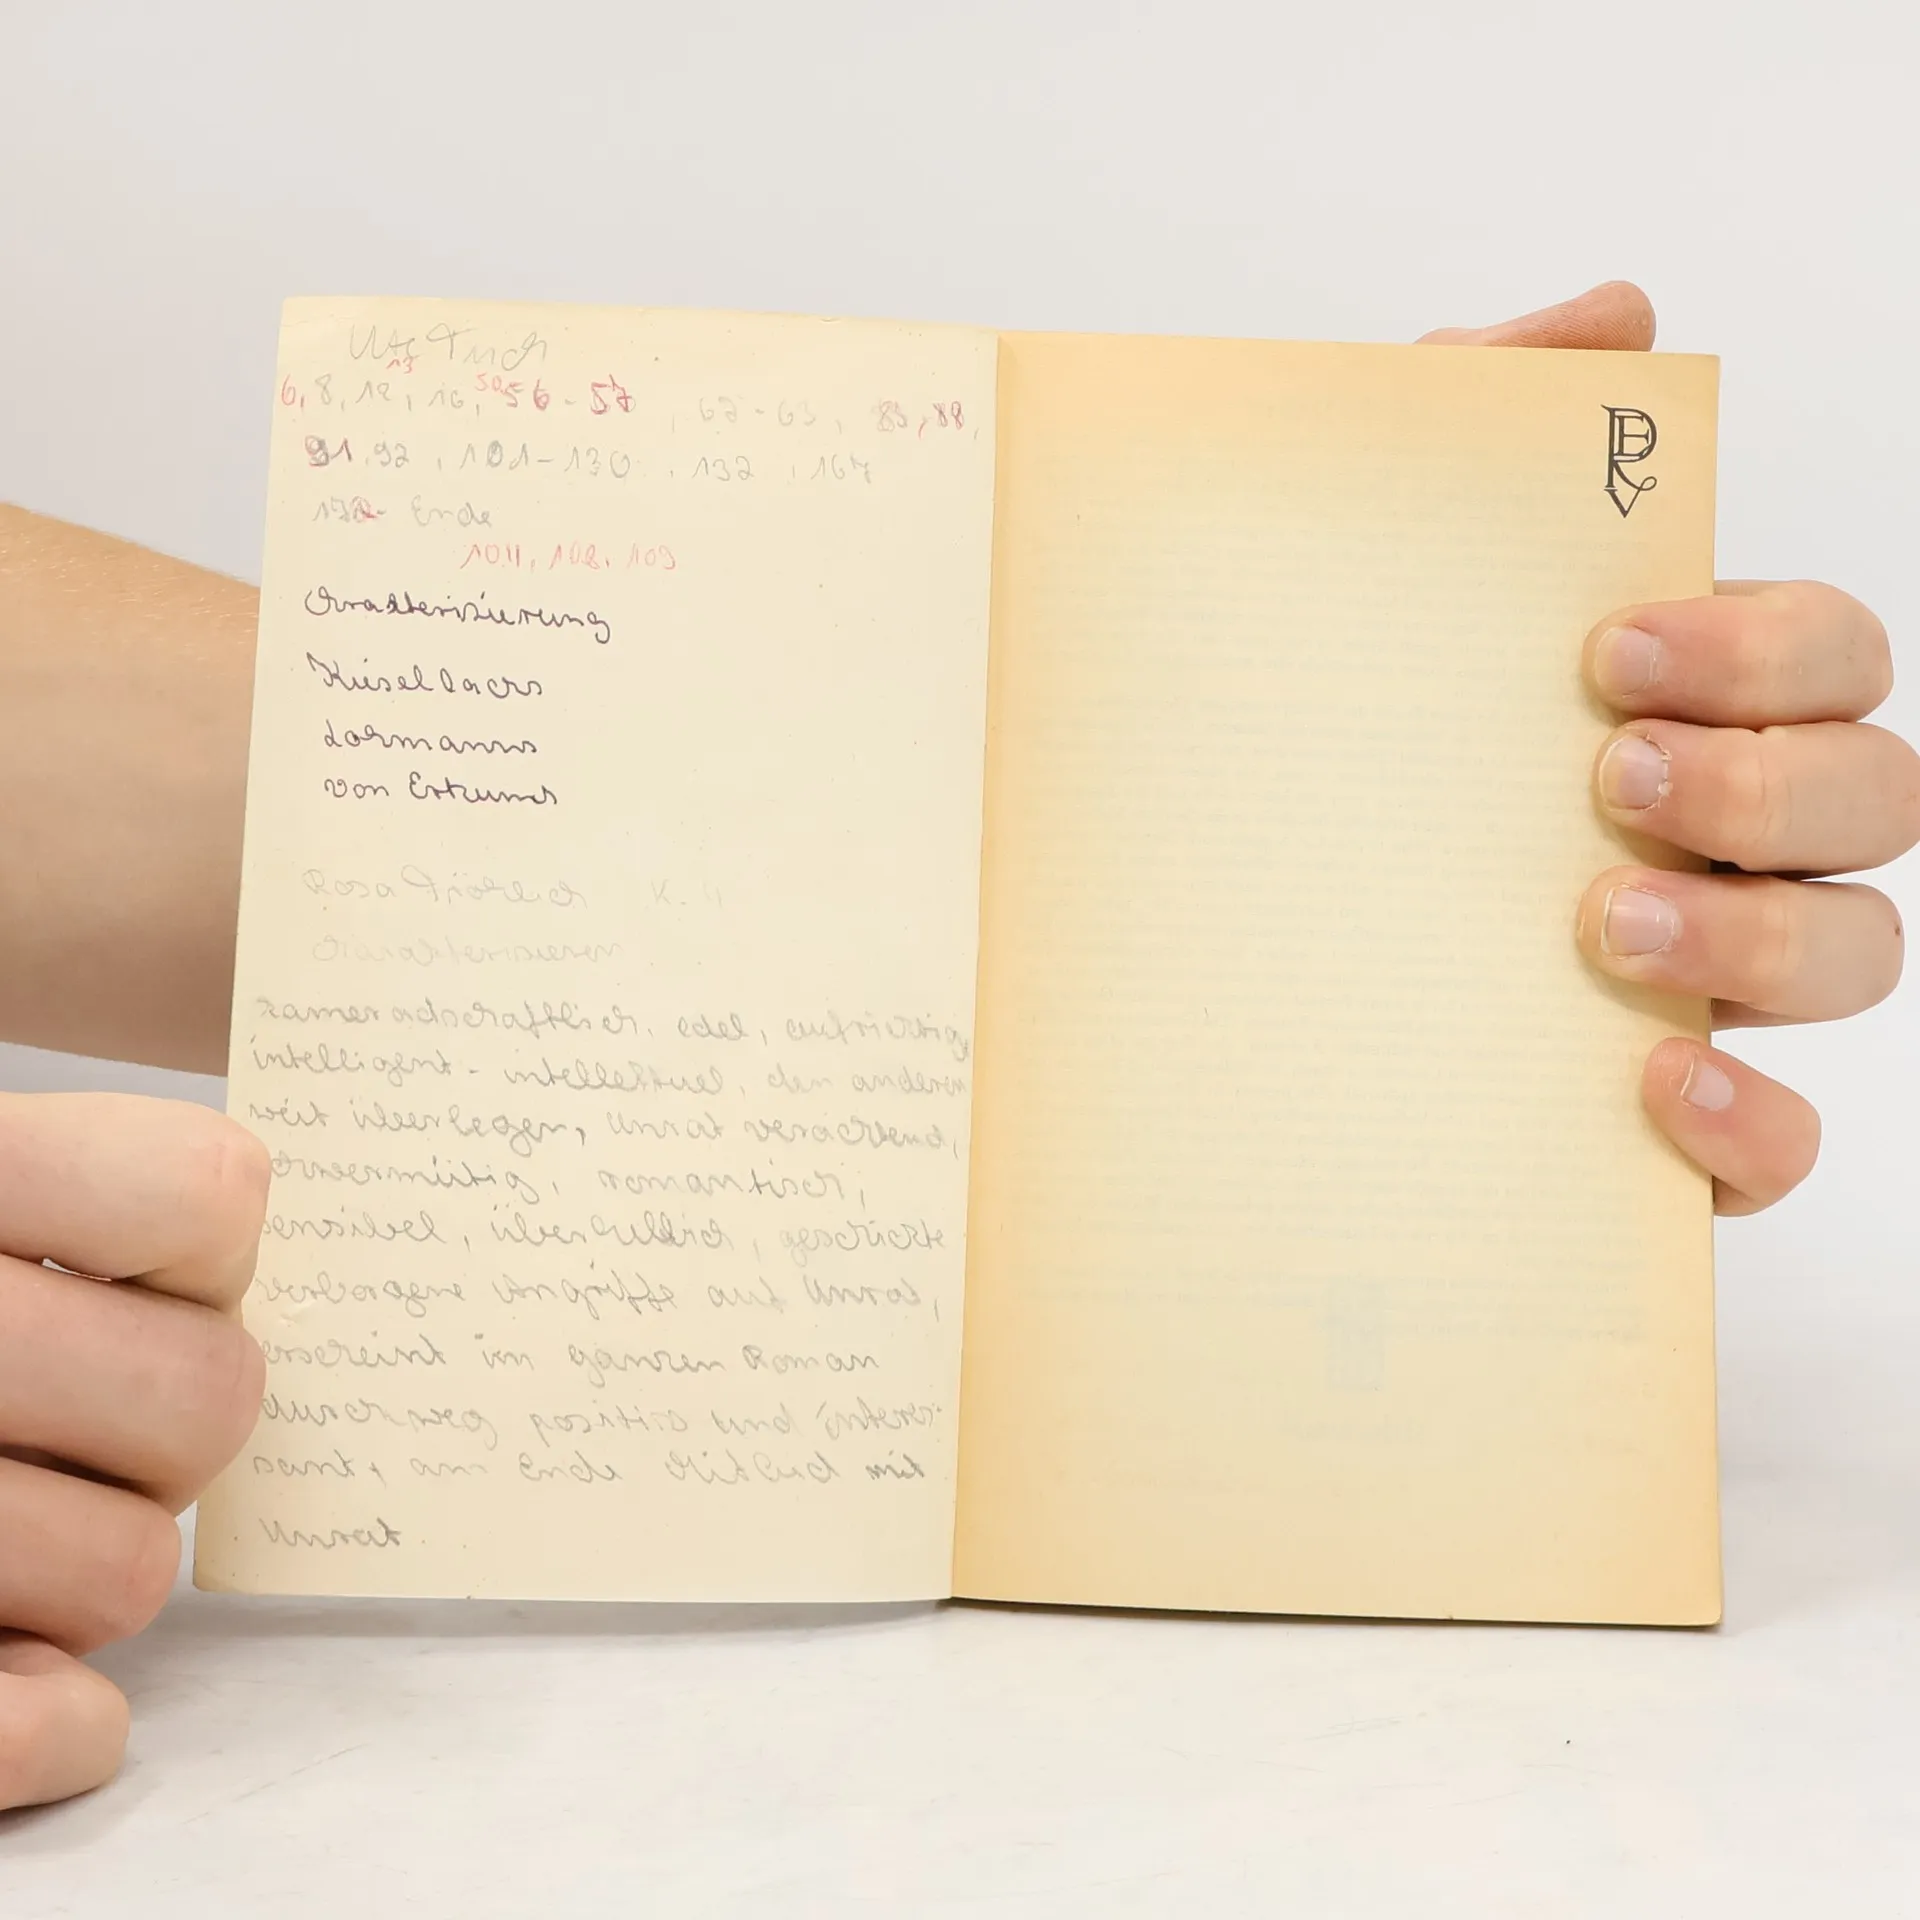 Ute
13
6, 8, 12, 16, 50 56 - 57, 62 - 63, 85, 88,
91, 92, 101 - 130, 132, 167
172 - Ende
101, 108, 109
Charakterisierung
Kieselacks
Lohmanns
von Ertzums
Rosa Fröhlich K. 4
Charakterisieren
kameradschaftlich, edel, aufrichtig
intelligent - intellektuel, den anderen
weit überlegen, Unrat verachtend,
schwermütig, romantisch,
sensibel, geschickte
verborgene Angriffe auf Unrat,
erscheint im ganzen Roman
durchweg positiv und interes-
sant, am Ende Mitleid mit
Unrat
DERV